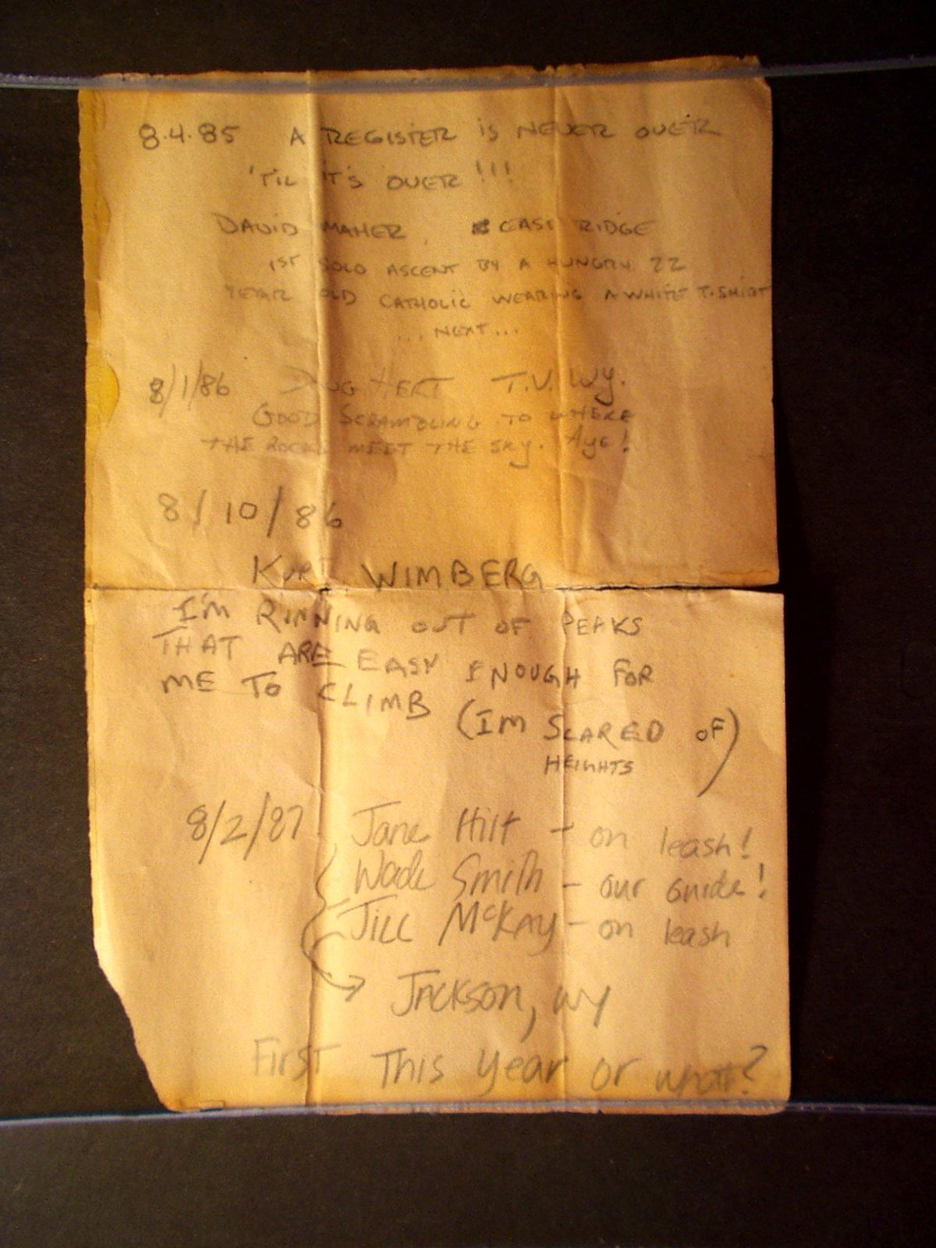 8.4.85 A REGISTER IS NEVER OVER
'TIL IT'S OVER!!!
DAVID MAHER, EAST RIDGE
1ST SOLO ASCENT BY A HUNGRY 22
YEAR OLD CATHOLIC WEARING A WHITE T-SHIRT
...NEXT...
8/1/86 DOUG HERT T.V. Wy.
GOOD SCRAMBLING TO WHERE
THE ROCKS MEET THE SKY. Aye!
8/10/86
KURT WIMBERG
I'M RUNNING OUT OF PEAKS
THAT ARE EASY ENOUGH FOR
ME TO CLIMB (I'M SCARED OF)
HEIGHTS
8/2/87 Jane Hilt - on leash!
Wade Smith - our guide!
Jill McKay - on leash
Jackson, Wy
First This Year or what?